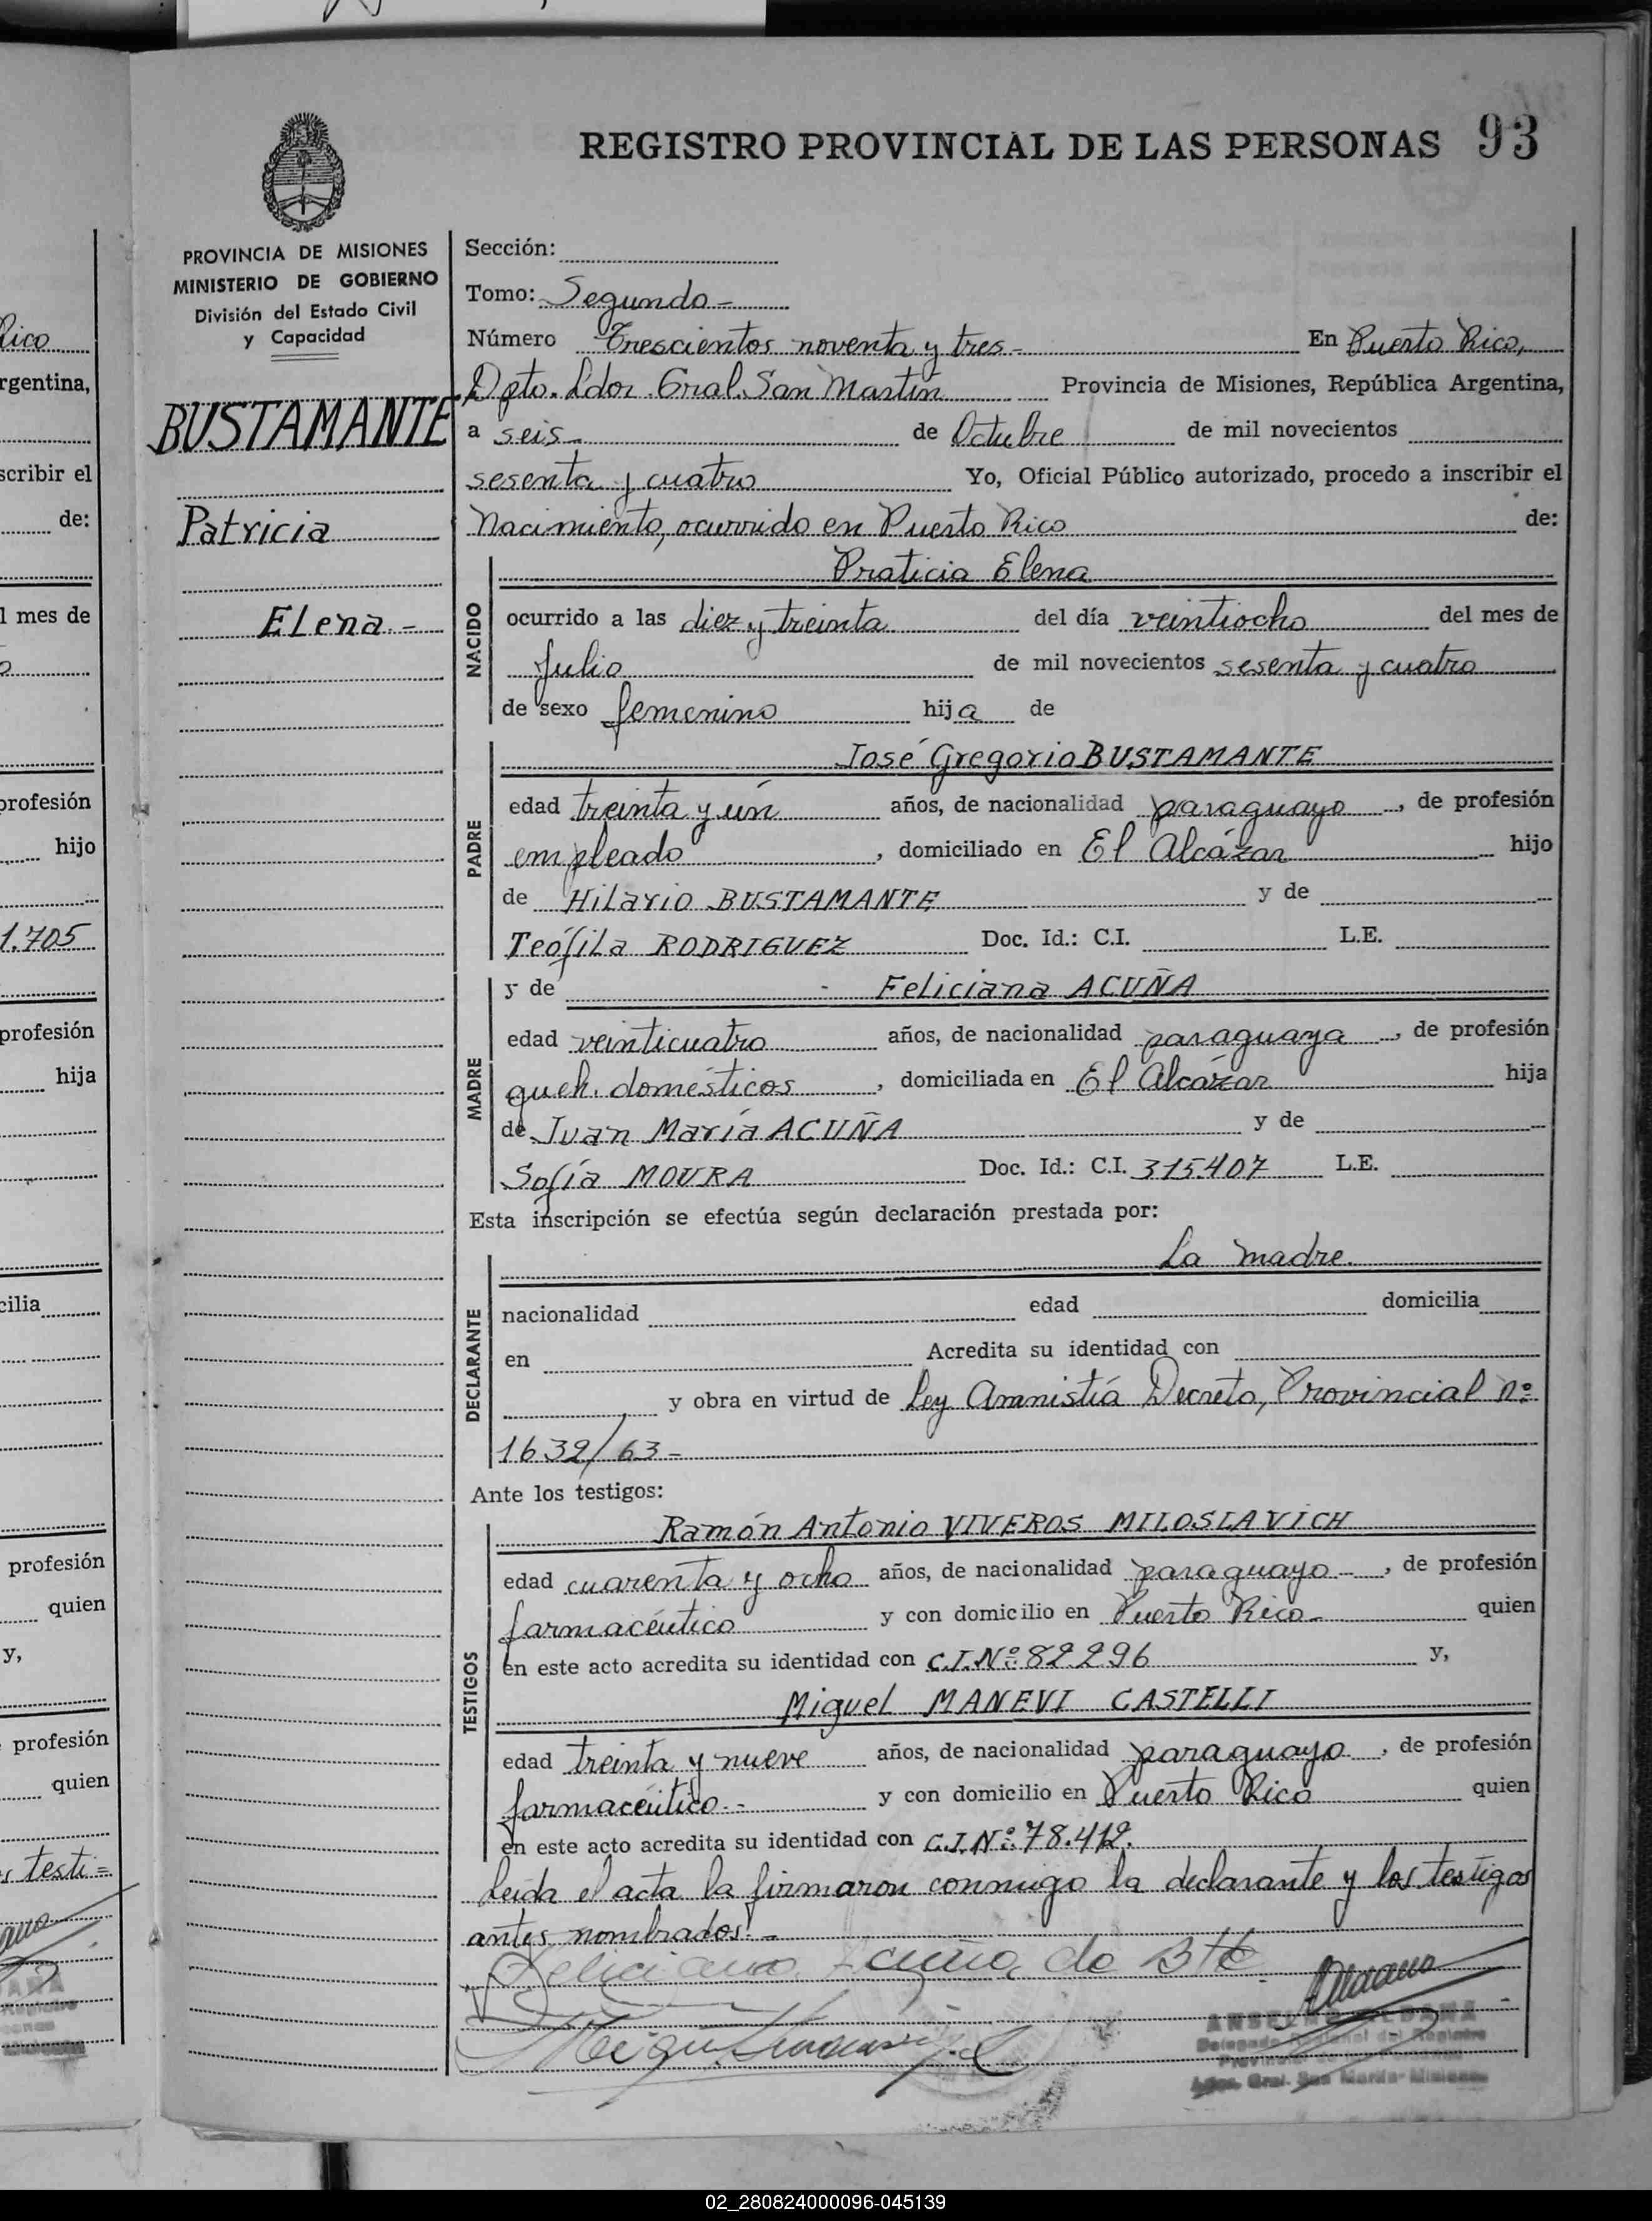 REGISTRO PROVINCIAL DE LAS PERSONAS 93
PROVINCIA DE MISIONES
MINISTERIO DE GOBIERNO
División del Estado Civil
y Capacidad
BUSTAMANTE
Patricia
Elena.-
Sección:
Tomo: Segundo-
Número Trescientos noventa y tres- En Puerto Rico,
Dpto. Ldor. Gral. San Martín Provincia de Misiones, República Argentina,
a seis- de Octubre de mil novecientos
sesenta y cuatro Yo, Oficial Público autorizado, procedo a inscribir el
Nacimiento, ocurrido en Puerto Rico de:
NACIDO
Praticia Elena
ocurrido a las diez y treinta del día veintiocho del mes de
Julio de mil novecientos sesenta y cuatro
de sexo femenino hija de
PADRE
José Gregorio BUSTAMANTE
edad treinta y ún años, de nacionalidad paraguayo, de profesión
empleado, domiciliado en El Alcázar hijo
de Hilario BUSTAMANTE y de
Teófila RODRIGUEZ Doc. Id.: C.I. L.E.
MADRE
y de Feliciana ACUÑA
edad veinticuatro años, de nacionalidad paraguaya, de profesión
queh. domésticos, domiciliada en El Alcázar hija
de Juan María ACUÑA y de
Sofía MOURA Doc. Id.: C.I. 315.407 L.E.
Esta inscripción se efectúa según declaración prestada por:
DECLARANTE
La madre.
nacionalidad edad domicilia
en Acredita su identidad con
y obra en virtud de Ley Amnistía Decreto, Provincial nº
1632/63-
Ante los testigos:
TESTIGOS
Ramón Antonio VIVEROS MILOSLAVICH
edad cuarenta y ocho años, de nacionalidad paraguayo-, de profesión
farmacéutico y con domicilio en Puerto Rico- quien
en este acto acredita su identidad con C.I.Nº: 82296 y,
Miguel MANEVI CASTELLI
edad treinta y nueve años, de nacionalidad paraguayo, de profesión
farmacéutico.- y con domicilio en Puerto Rico quien
en este acto acredita su identidad con C.I.Nº: 78.412.
Leída el acta la firmaron conmigo la declarante y los testigos
antes nombrados.-
Feliciana Acuña de Bte
ANSELMO ALDANA
Delegado Regional del Registro
Provincial de las Personas
Ldor. Gral. San Martín-Misiones
Rico
rgentina,
scribir el
de:
l mes de
profesión
hijo
1.705
profesión
hija
cilia
profesión
quien
y,
profesión
quien
s testi=
02_280824000096-045139